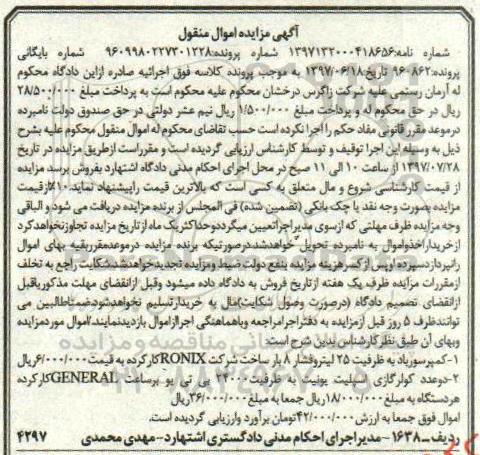 آگهی مزایده اموال منقول
شماره نامه:۱۳۹۷۱۳۲۰۰۰۴۱۸۶۵۶ شماره پرونده:۹۶۰۹۹۸۰۲۲۷۳۰۱۲۲۸ شماره بایگانی
پرونده:۹۶۰۸۶۲ تاریخ:۱۳۹۷/۰۶/۱۸ به موجب پرونده کلاسه فوق اجرائیه صادره ازاین دادگاه محکوم
له آرمان رستمی علیه شرکت زاگرس درخشان محکوم علیه محکوم است به پرداخت مبلغ ۲۸/۵۰۰/۰۰۰
ریال در حق محکوم له و پرداخت مبلغ ۱/۵۰۰/۰۰۰ ریال نیم عشر دولتی در حق صندوق دولت نامبرده
درموعد مقرر قانونی مفاد حکم را اجرا نکرده است حسب تقاضای محکوم له اموال منقول محکوم علیه بشرح
ذیل به وسیله این اجرا توقیف و توسط کارشناس ارزیابی گردیده است و مقرراست ازطریق مزایده در تاریخ
۱۳۹۷/۰۷/۲۸ از ساعت ۱۰ الی ۱۱ صبح در محل اجرای احکام مدنی دادگاه اشتهارد بفروش برسد مزایده
از قیمت کارشناسی شروع و مال متعلق به کسی است که بالاترین قیمت راپیشنهاد نماید.۱۰٪ازقیمت
مزایده بصورت وجه نقد یا چک بانکی (تضمین شده) فی المجلس از برنده مزایده دریافت می شود و الباقی
وجه مزایده ظرف مهلتی که ازسوی مدیراجراتعیین میگرددوحداکثریک ماه ازتاریخ مزایده تجاوزنخواهدکرد
ازخریداراخذواموال به نامبرده تحویل خواهدشد.درصورتیکه برنده مزایده درموعدمقرربقیه بهای اموال
رانپردازدسپرده اوپس ازکسرهزینه مزایده بنفع دولت ضبط ومزایده تجدیدخواهدشد.شکایت راجع به تخلف
ازمقررات مزایده ظرف یک هفته ازتاریخ فروش به دادگاه داده میشود وقبل ازانقضای مهلت مذکوریاقبل
ازانقضای تصمیم دادگاه (درصورت وصول شکایت)مال به خریدارتسلیم نخواهدشد.ضمناطالبین می
توانندظرف ۵ روز قبل ازمزایده به دفتراجرامراجعه وباهماهنگی اجراازاموال بازدیدنمایند.۲اموال موردمزایده
وبهای آن طبق نظرکارشناس بدین شرح است:
۱-کمپرسورباد به ظرفیت ۲۵ لیتروفشار ۸ بار ساخت شرکت RONIXکارکرده به قیمت۶/۰۰۰/۰۰۰ریال
۲-دوعدد کولرگازی اسپلیت یونیت به ظرفیت ۲۴۰۰۰ بی تی یو برساعت GENERALکارکرده
هردستگاه به مبلغ۱۸/۰۰۰/۰۰۰ریال جمعا به مبلغ۳۶/۰۰۰/۰۰۰ریال
اموال فوق جمعا به ارزش۴۲/۰۰۰/۰۰۰تومان برآورد وارزیابی گردیده است.
ردیف ــ ۱۶۳۸ -مدیراجرای احکام مدنی دادگستری اشتهارد-مهدی محمدی ۴۲۹۷